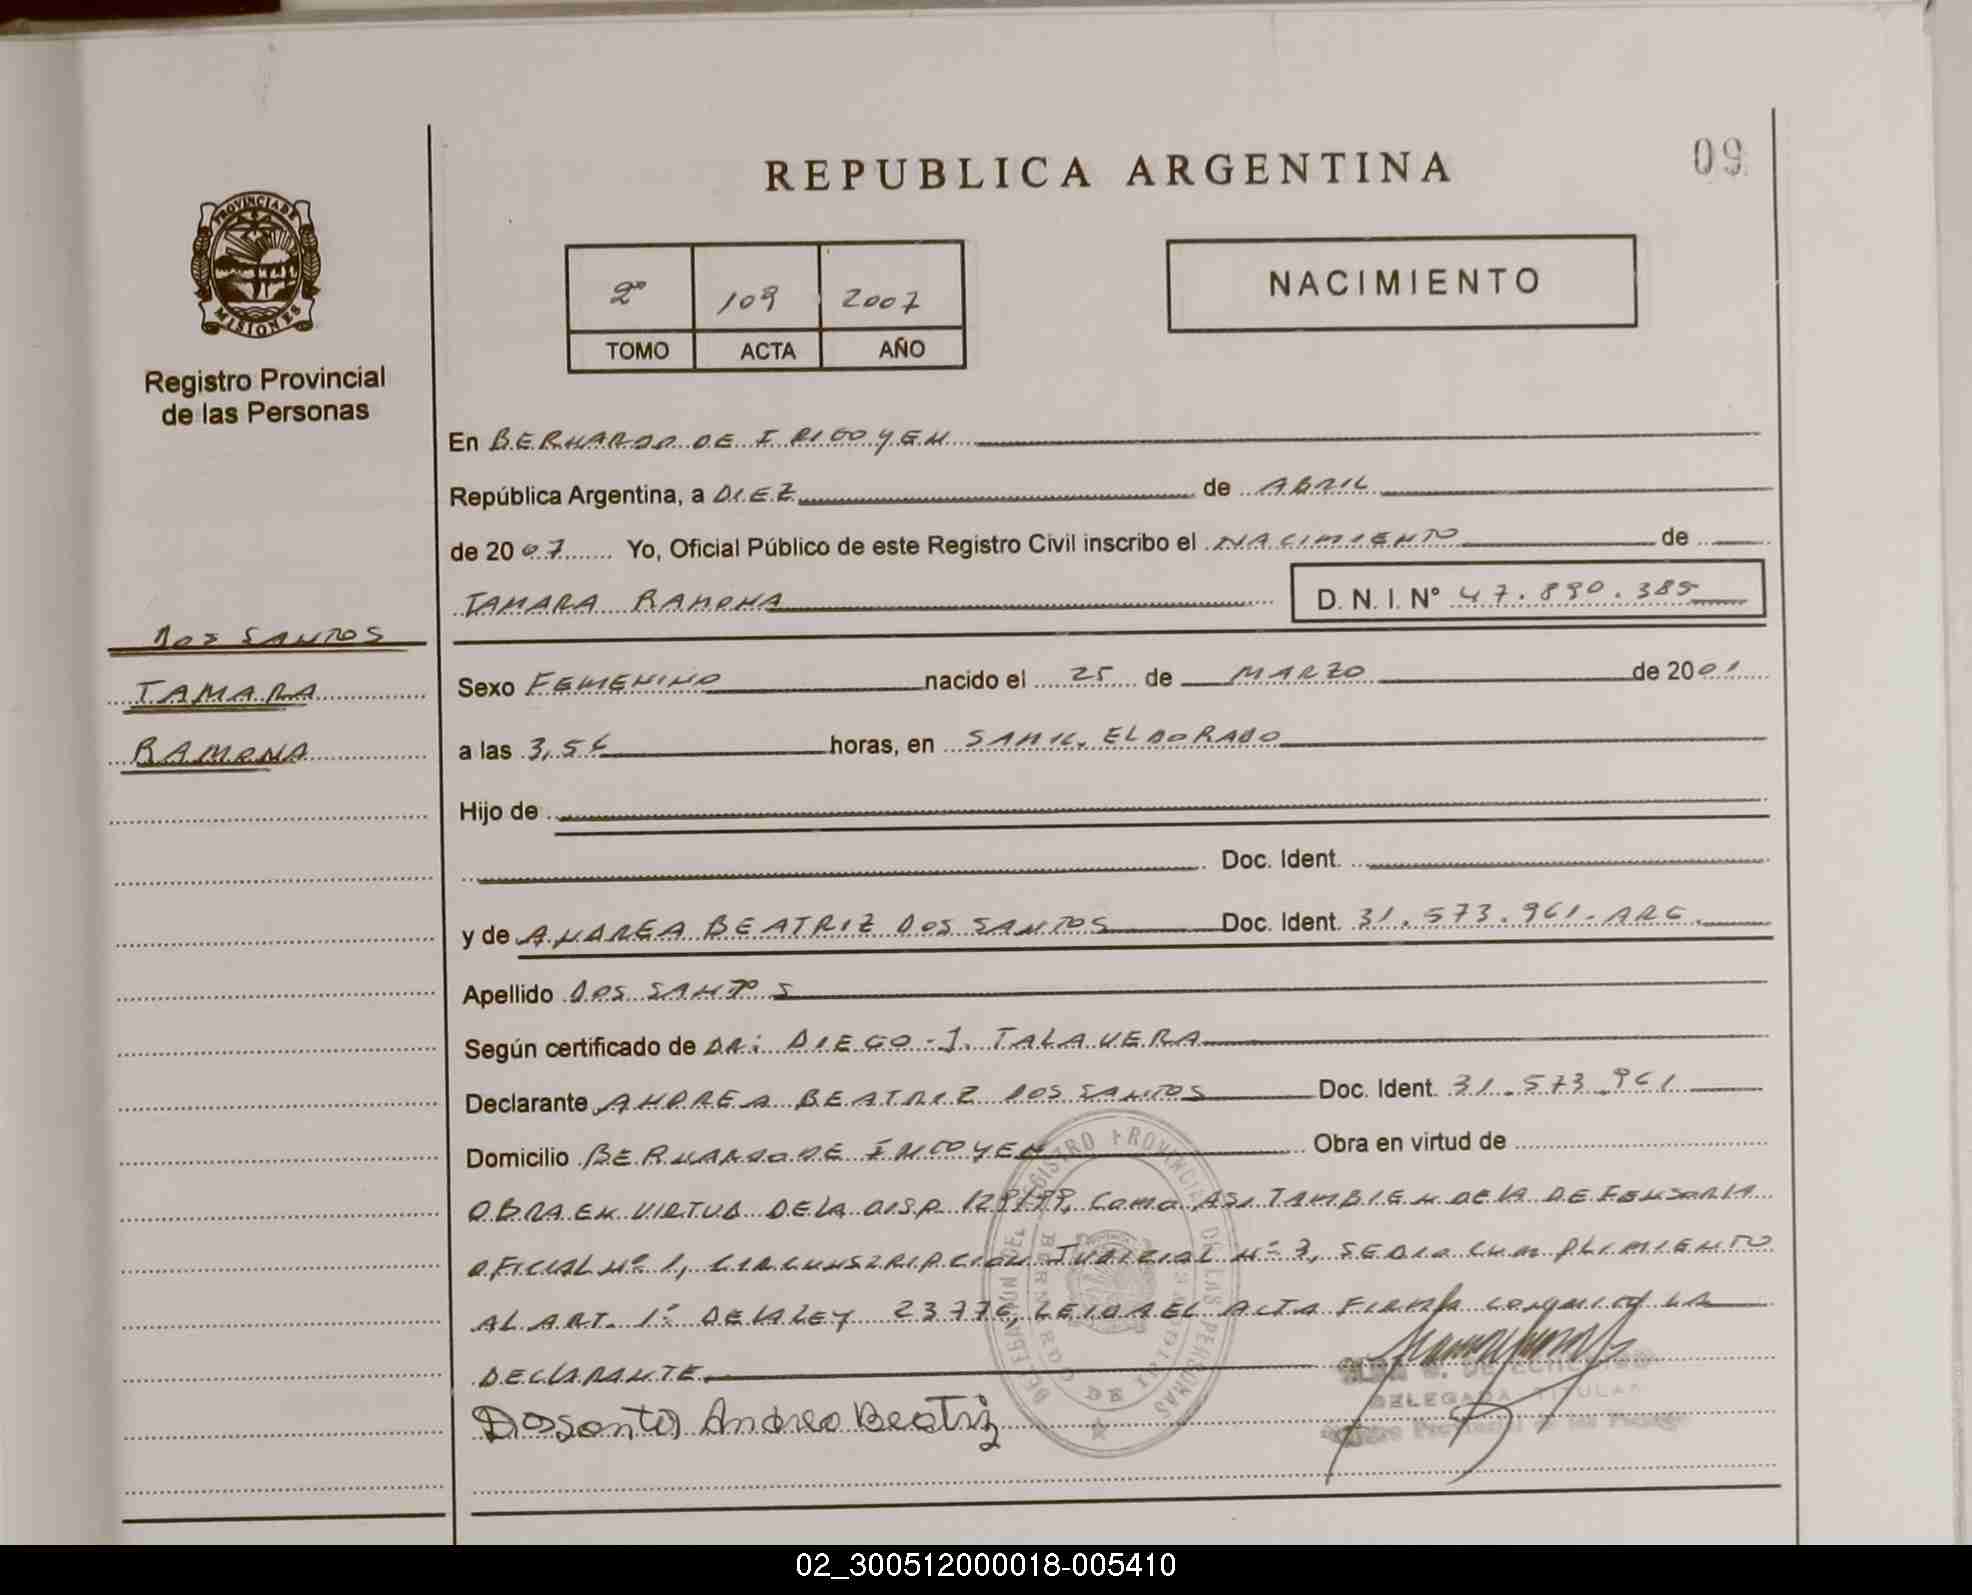 REPUBLICA ARGENTINA
09
PROVINCIA DE
MISIONES
Registro Provincial
de las Personas
2º 109 2007
TOMO ACTA AÑO
NACIMIENTO
En BERNARDO DE IRIGOYEN
República Argentina, a DIEZ de ABRIL
de 2007 Yo, Oficial Público de este Registro Civil inscribo el NACIMIENTO de
TAMARA RAMONA D. N. I. Nº 47.890.385
DOS SANTOS
TAMARA
RAMONA
Sexo FEMENINO nacido el 25 de MARZO de 2001
a las 3,56 horas, en SAMIC. ELDORADO
Hijo de
Doc. Ident.
y de ANDREA BEATRIZ DOS SANTOS Doc. Ident. 31.573.961-ARG.
Apellido DOS SANTOS
Según certificado de DR: DIEGO-J. TALAVERA
Declarante ANDREA BEATRIZ DOS SANTOS Doc. Ident. 31.573.961
Domicilio BERNARDO DE IRIGOYEN Obra en virtud de
OBRA EN VIRTUD DE LA DISP. 129/99, COMO ASI TAMBIEN DE LA DEFENSORIA
OFICIAL Nº 1, CIRCUNSCRIPCION JUDICIAL Nº 3, SE DIO CUMPLIMIENTO
AL ART. 1º DE LA LEY 23776, LEIDA EL ACTA FIRMA CONMIGO LA
DECLARANTE
Dos santos Andrea Beatriz
DELEGACION DEL REGISTRO PROVINCIAL DE LAS PERSONAS
BERNARDO DE IRIGOYEN
DELEGADA TITULAR
02_300512000018-005410